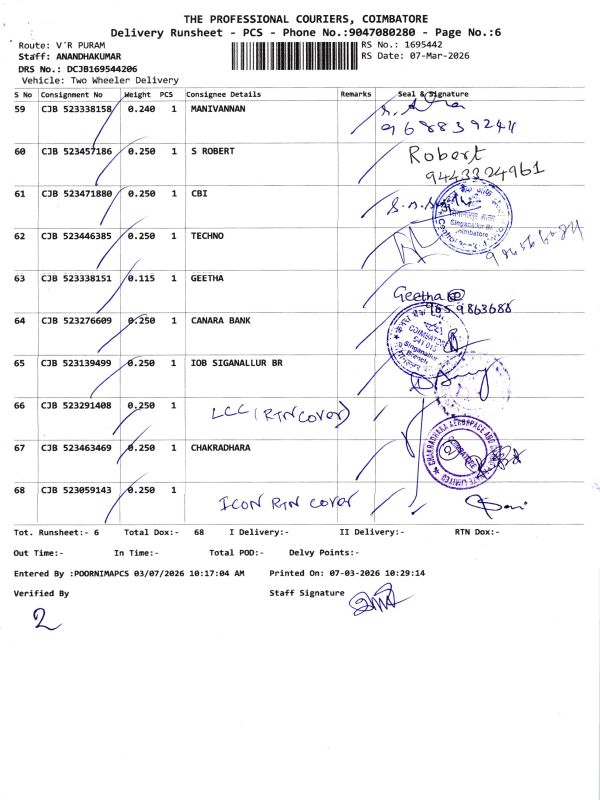 THE PROFESSIONAL COURIERS, COIMBATORE
Delivery Runsheet - PCS - Phone No.:9047080280 - Page No.:6
Route: V'R PURAM
RS No.: 1695442
Staff: ANANDHAKUMAR
RS Date: 07-Mar-2026
DRS No.: DCJB169544206
Vehicle: Two Wheeler Delivery
S No Consignment No Weight PCS Consignee Details Remarks Seal & Signature
59 CJB 523338158 0.240 1 MANIVANNAN
9688392411
60 CJB 523457186 0.250 1 S ROBERT Robert
9443324961
61 CJB 523471880 0.250 1 CBI
Singanallur Br
Coimbatore
62 CJB 523446385 0.250 1 TECHNO
63 CJB 523338151 0.115 1 GEETHA Geetha
9659863688
64 CJB 523276609 0.250 1 CANARA BANK
COIMBATORE
641 015
Singanallur
Branch
65 CJB 523139499 0.250 1 IOB SIGANALLUR BR
66 CJB 523291408 0.250 1 LCC (RTN COVER)
67 CJB 523463469 0.250 1 CHAKRADHARA
CHAKRADHARA AEROSPACE AND
COIMBATORE
68 CJB 523059143 0.250 1 ICON RTN COVER
Tot. Runsheet:- 6 Total Dox:- 68 I Delivery:- II Delivery:- RTN Dox:-
Out Time:- In Time:- Total POD:- Delvy Points:-
Entered By :POORNIMAPCS 03/07/2026 10:17:04 AM Printed On: 07-03-2026 10:29:14
Verified By Staff Signature
2